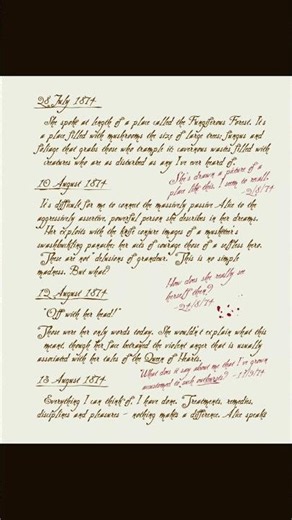 28 July 1874
She spoke at length of a place called the Fungiferous Forest. It's
a place filled with mushrooms the size of large trees, fungus and
foliage that grabs those who trample it; cavernous wastes filled with
creatures who are as disturbed as any I've ever heard of.
She's drawn a picture of a
place like this, I seem to recall.
10 August 1874
It's difficult for me to connect the massively passive Alice to the
aggressively assertive, powerful person she describes in her dreams.
Her exploits with the knife conjure images of a musketeer's
swashbuckling panache; her acts of courage those of a selfless hero.
These are not 'delusions of grandeur.' This is no simple
madness. But what?
How does she really see
herself then?
- 24/8/74
12 August 1874
"Off with her head!"
Those were her only words today. She wouldn't explain what this
meant, though her face betrayed the violent anger that is usually
associated with her tales of the Queen of Hearts.
What does it say about me that I've grown
accustomed to such outbursts?
13 August 1874
Everything I can think of, I have done. Treatments, remedies,
disciplines and pleasures - nothing makes a difference. Alice speaks